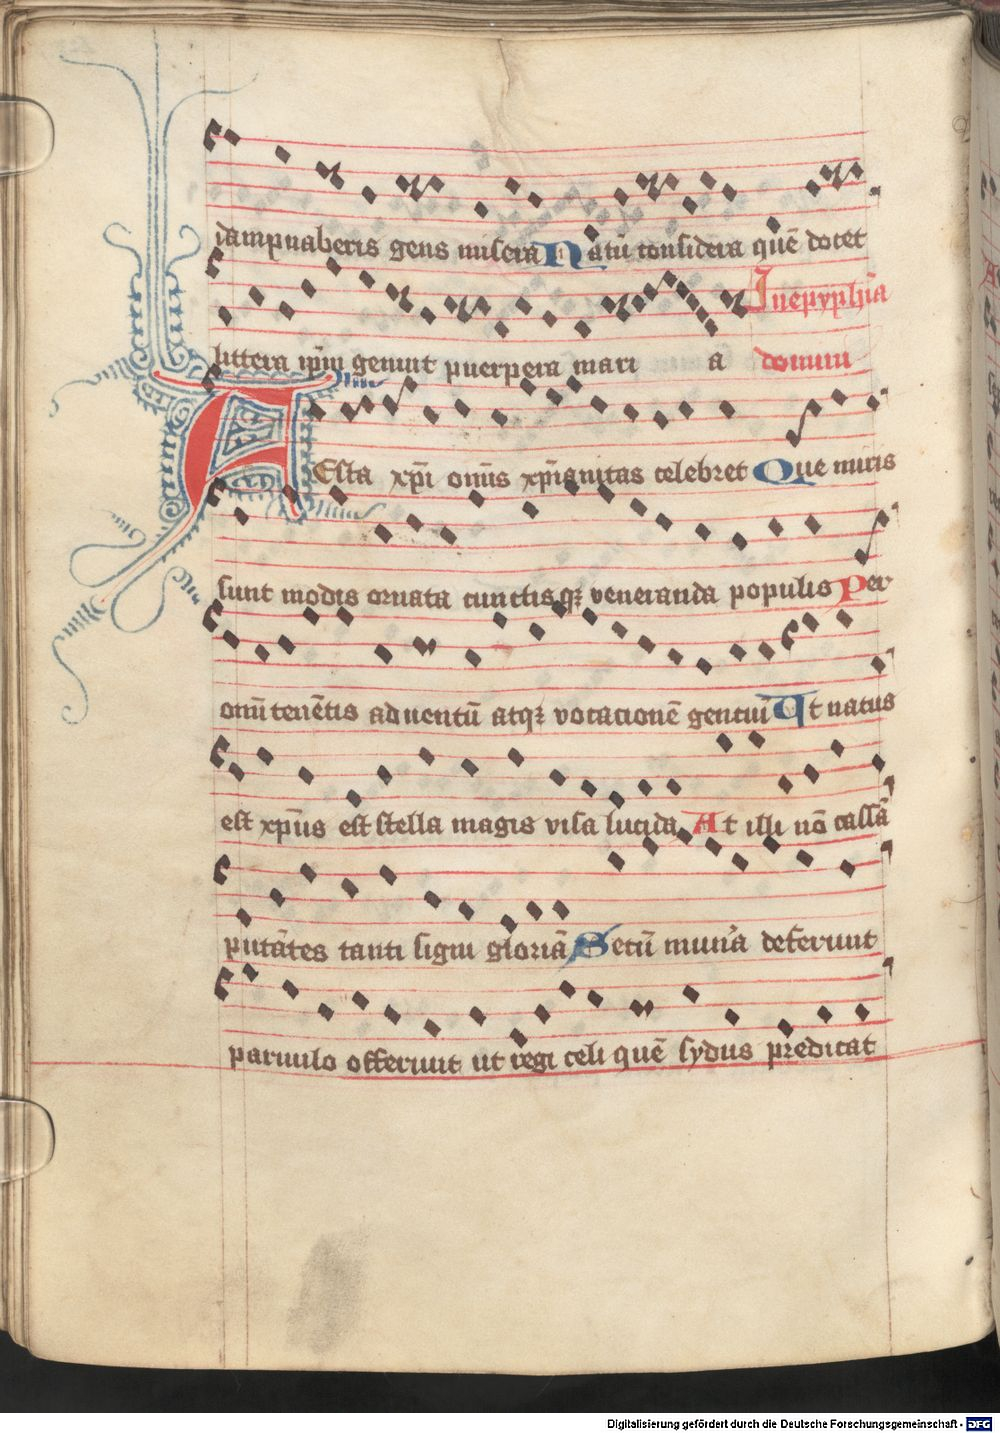 dampnaberis gens misera Natū considera quē docet
littera ip̄m genuit puerpera mari a
Inepyphīa domini
FEsta xp̄i om̄is xp̄ianitas celebret Que miris
sunt modis ornata cunctisqꝫ veneranda populis Per
om̄itenētis aduentū atqꝫ vocationē gentiū Ut natus
est xp̄us est stella magis visa lucida At illi nō cassā
putātes tanti signi gloriā Secū mun̄a deferunt
paruulo offerunt ut regi celi quē sydus predicat
Digitalisierung gefördert durch die Deutsche Forschungsgemeinschaft - DFG